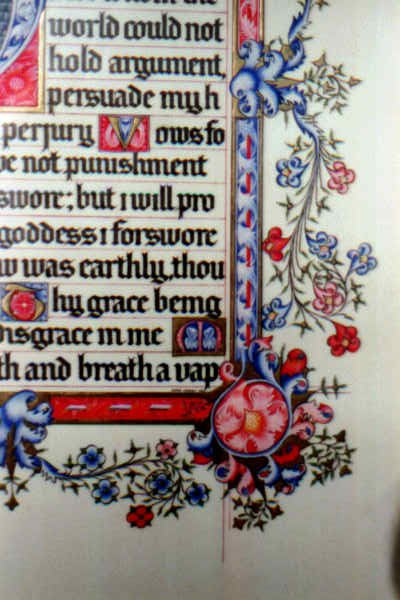 world could not
hold argument,
persuade my h
perjury Vows fo
ve not punishment
swore; but i will pro
goddess i forswore
w was earthly, thou
Thy grace being
disgrace in me M
th and breath a vap